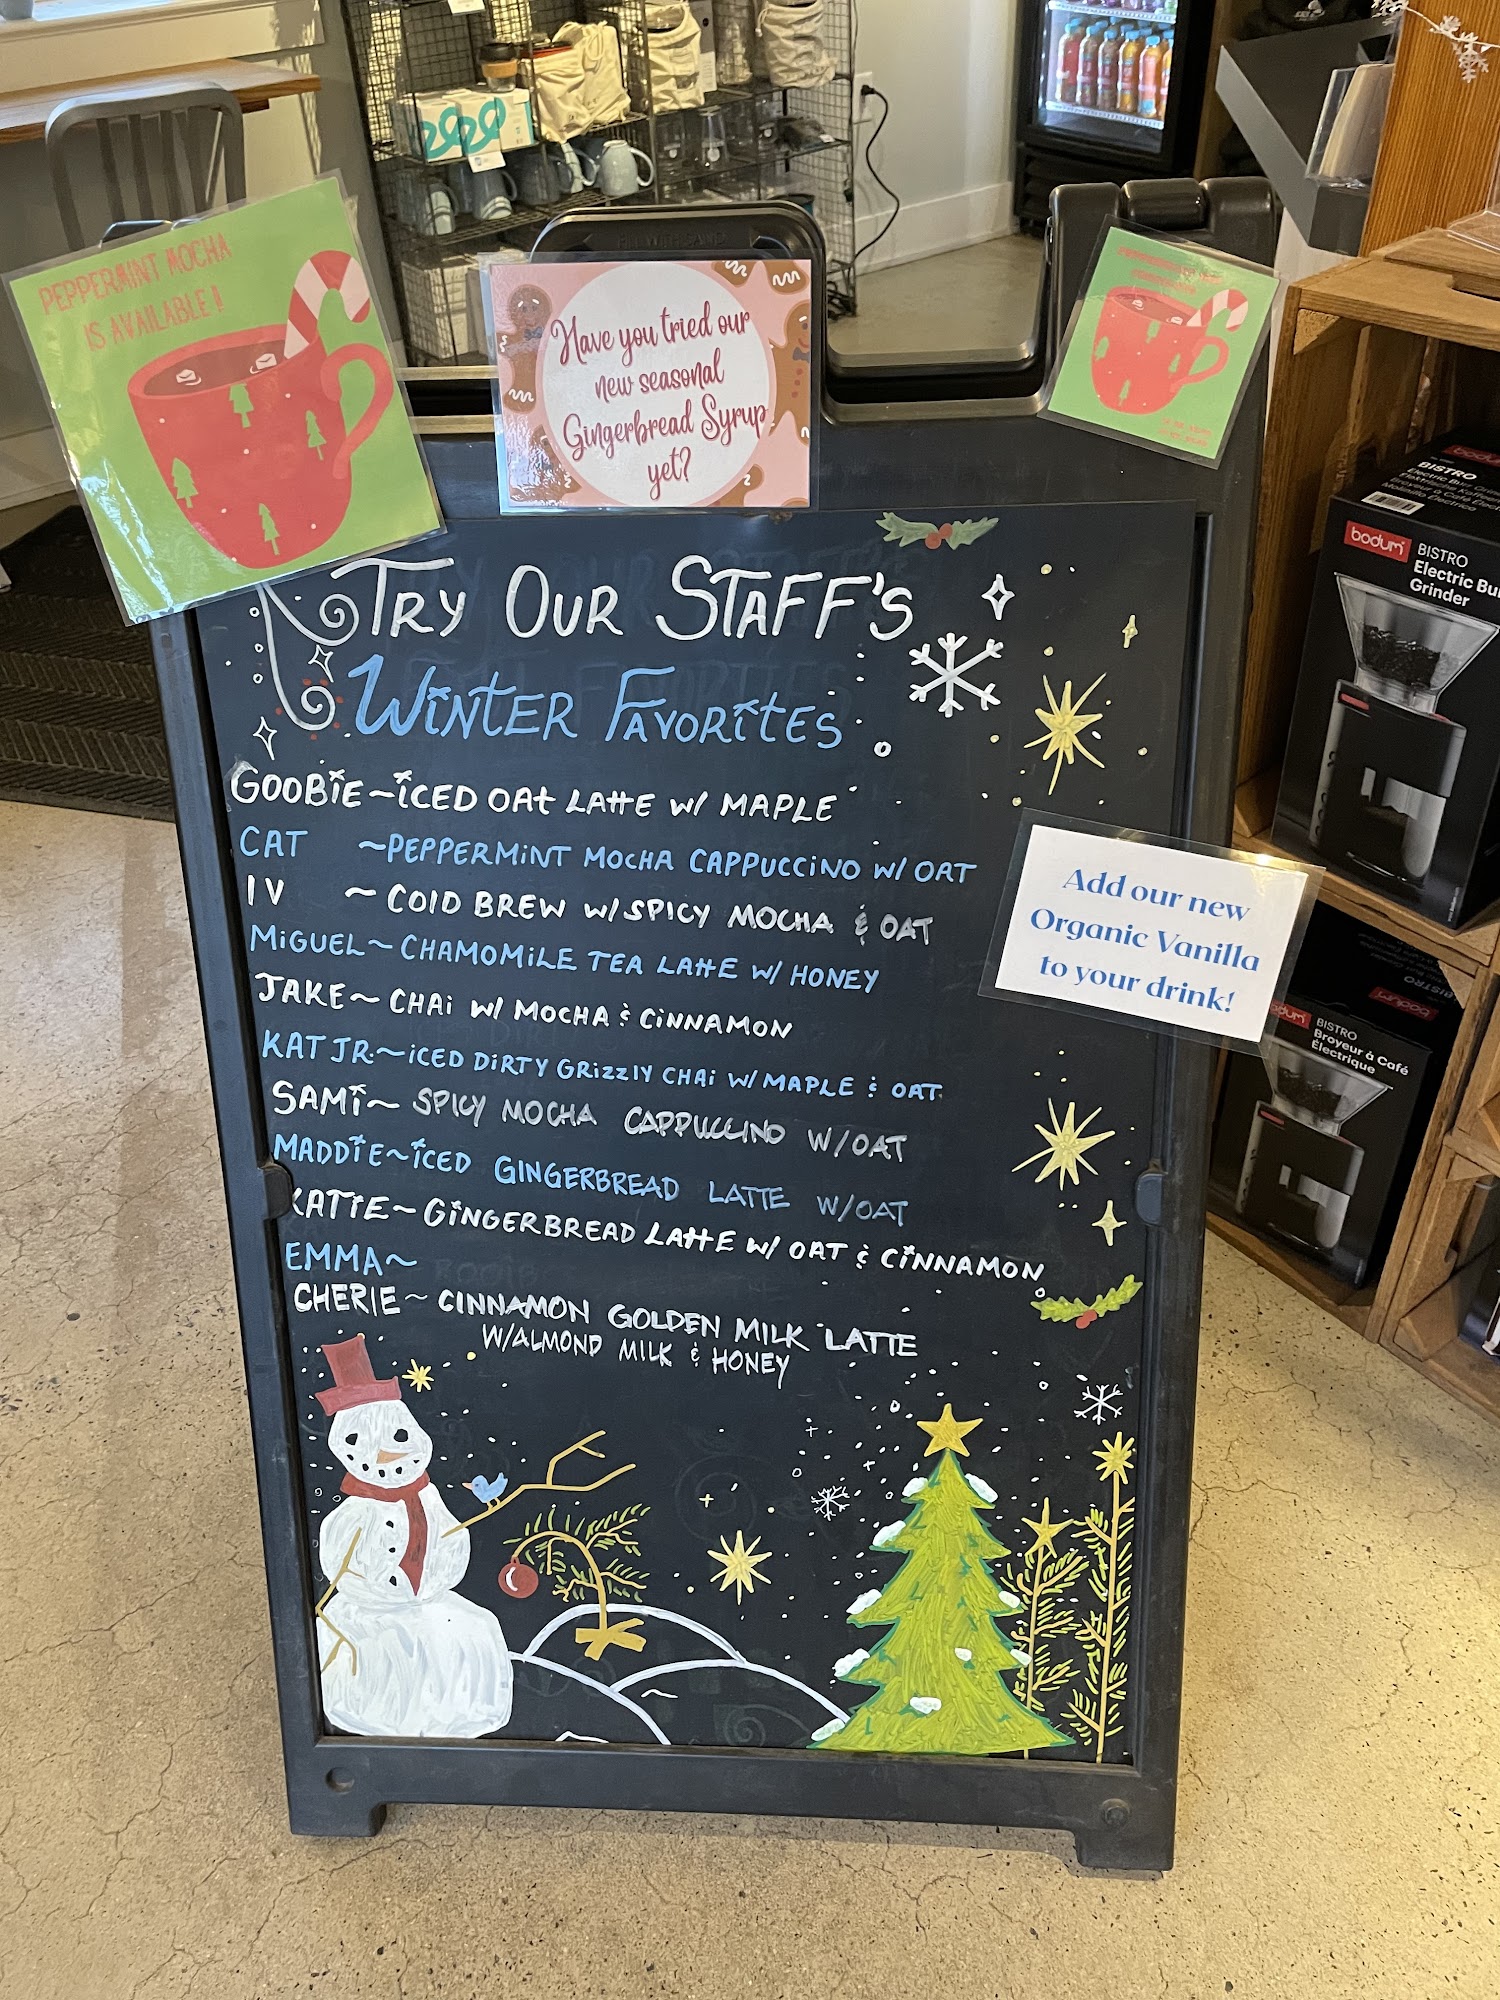 PEPPERMINT MOCHA
IS AVAILABLE!
FILL WITH SAND
Have you tried our
new seasonal
Gingerbread Syrup
yet?
TRY OUR STAFF'S
WINTER FAVORITES
GOOBIE~ICED OAT LATTE W/ MAPLE
CAT ~PEPPERMINT MOCHA CAPPUCCINO W/ OAT
IV ~ COLD BREW W/SPICY MOCHA & OAT
MIGUEL~CHAMOMILE TEA LATTE W/ HONEY
JAKE~ CHAI W/ MOCHA & CINNAMON
KAT JR.~ICED DIRTY GRIZZLY CHAI W/ MAPLE & OAT
SAMI~ SPICY MOCHA CAPPUCCINO W/OAT
MADDIE~ICED GINGERBREAD LATTE W/OAT
KATIE~GINGERBREAD LATTE W/ OAT & CINNAMON
EMMA~
CHERIE~ CINNAMON GOLDEN MILK LATTE
W/ALMOND MILK & HONEY
Add our new
Organic Vanilla
to your drink!
bodum
BISTRO
bodum
BISTRO
Electric Bu
Grinder
BISTRO
bodum
bodum
BISTRO
Broyeur à Café
Électrique